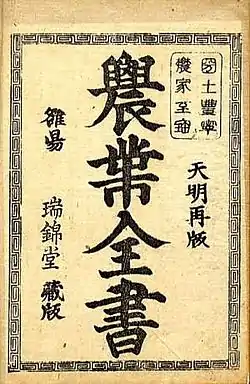 國土豐寧
農家至寶
天明再版
農業全書
雒昜
瑞錦堂藏版